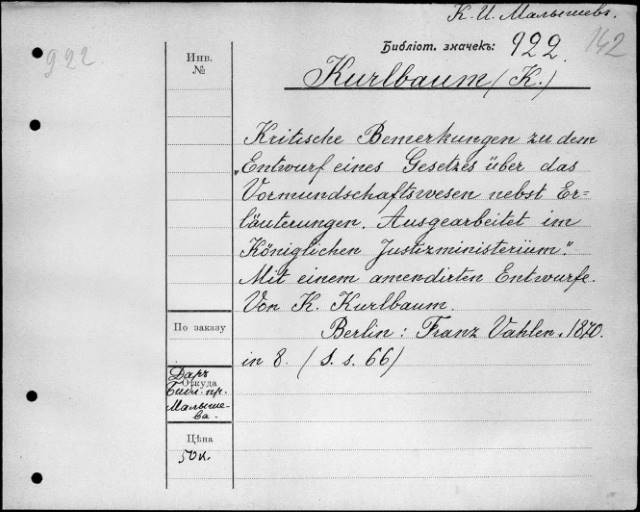 К. И. Малышевъ.
Библіот. значекъ: 922. 142
922
Инв.
№
Kurlbaum (K.)
Kritische Bemerkungen zu dem
„Entwurf eines Gesetzes über das
Vormundschaftswesen nebst Er=
läuterungen. Ausgearbeitet im
Königlichen Justizministerium."
Mit einem amendirten Entwurfe.
Von K. Kurlbaum.
По заказу
Berlin: Franz Vahlen. 1870.
in 8. (S. s. 66)
Даръ
Откуда
Библ. пр.
Малыше-
ва.
Цѣна
50 к.